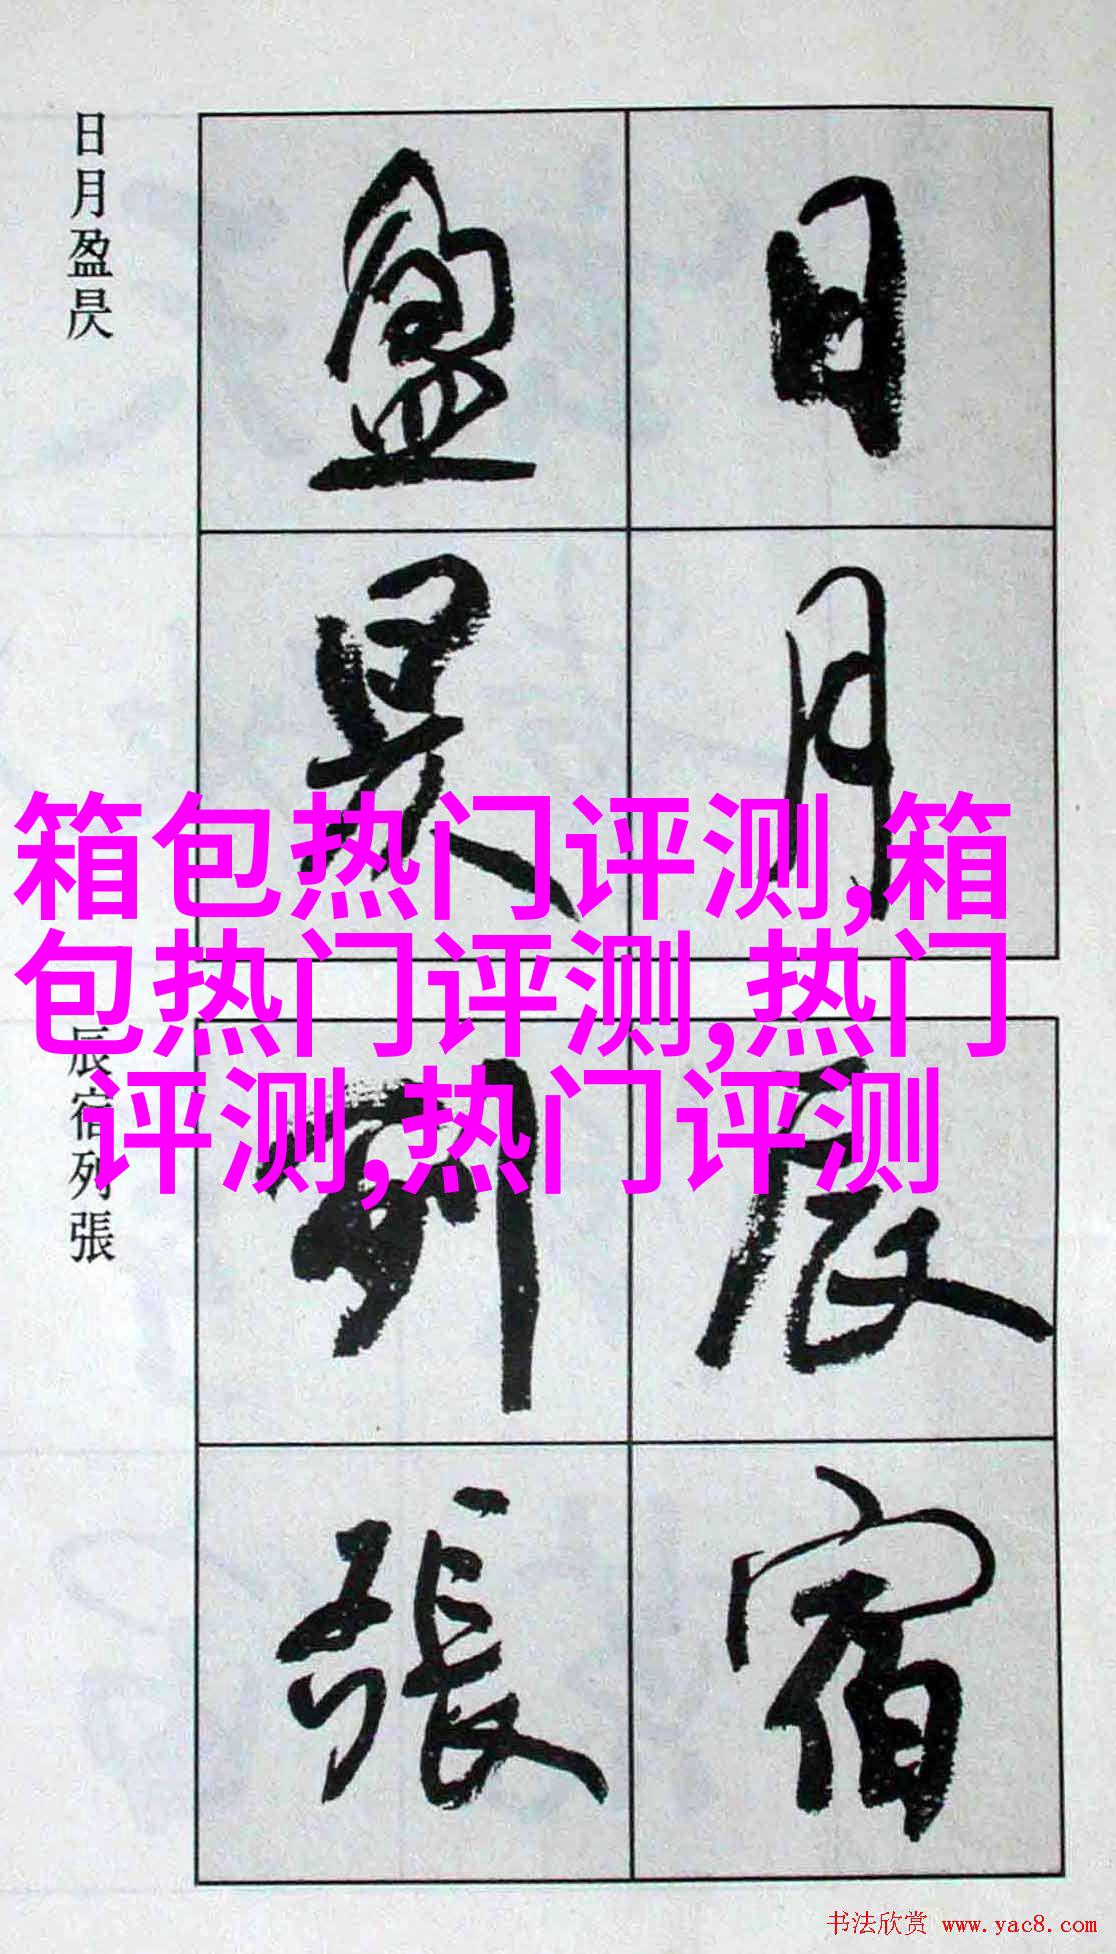 日月盈昃
日月
盈昃
箱包热门评测,箱
包热门评测,热门
评测,热门评测
辰宿列張
辰宿
列張
书法欣赏 www.yac8.com